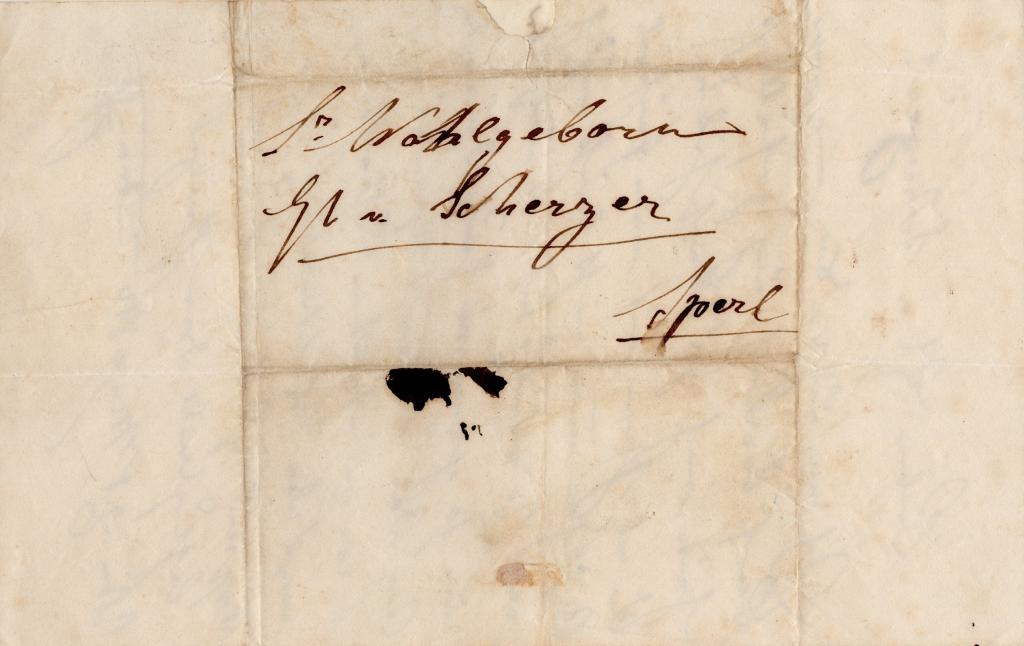 Sr Wohlgeborn
v. Scherzer
Sperl